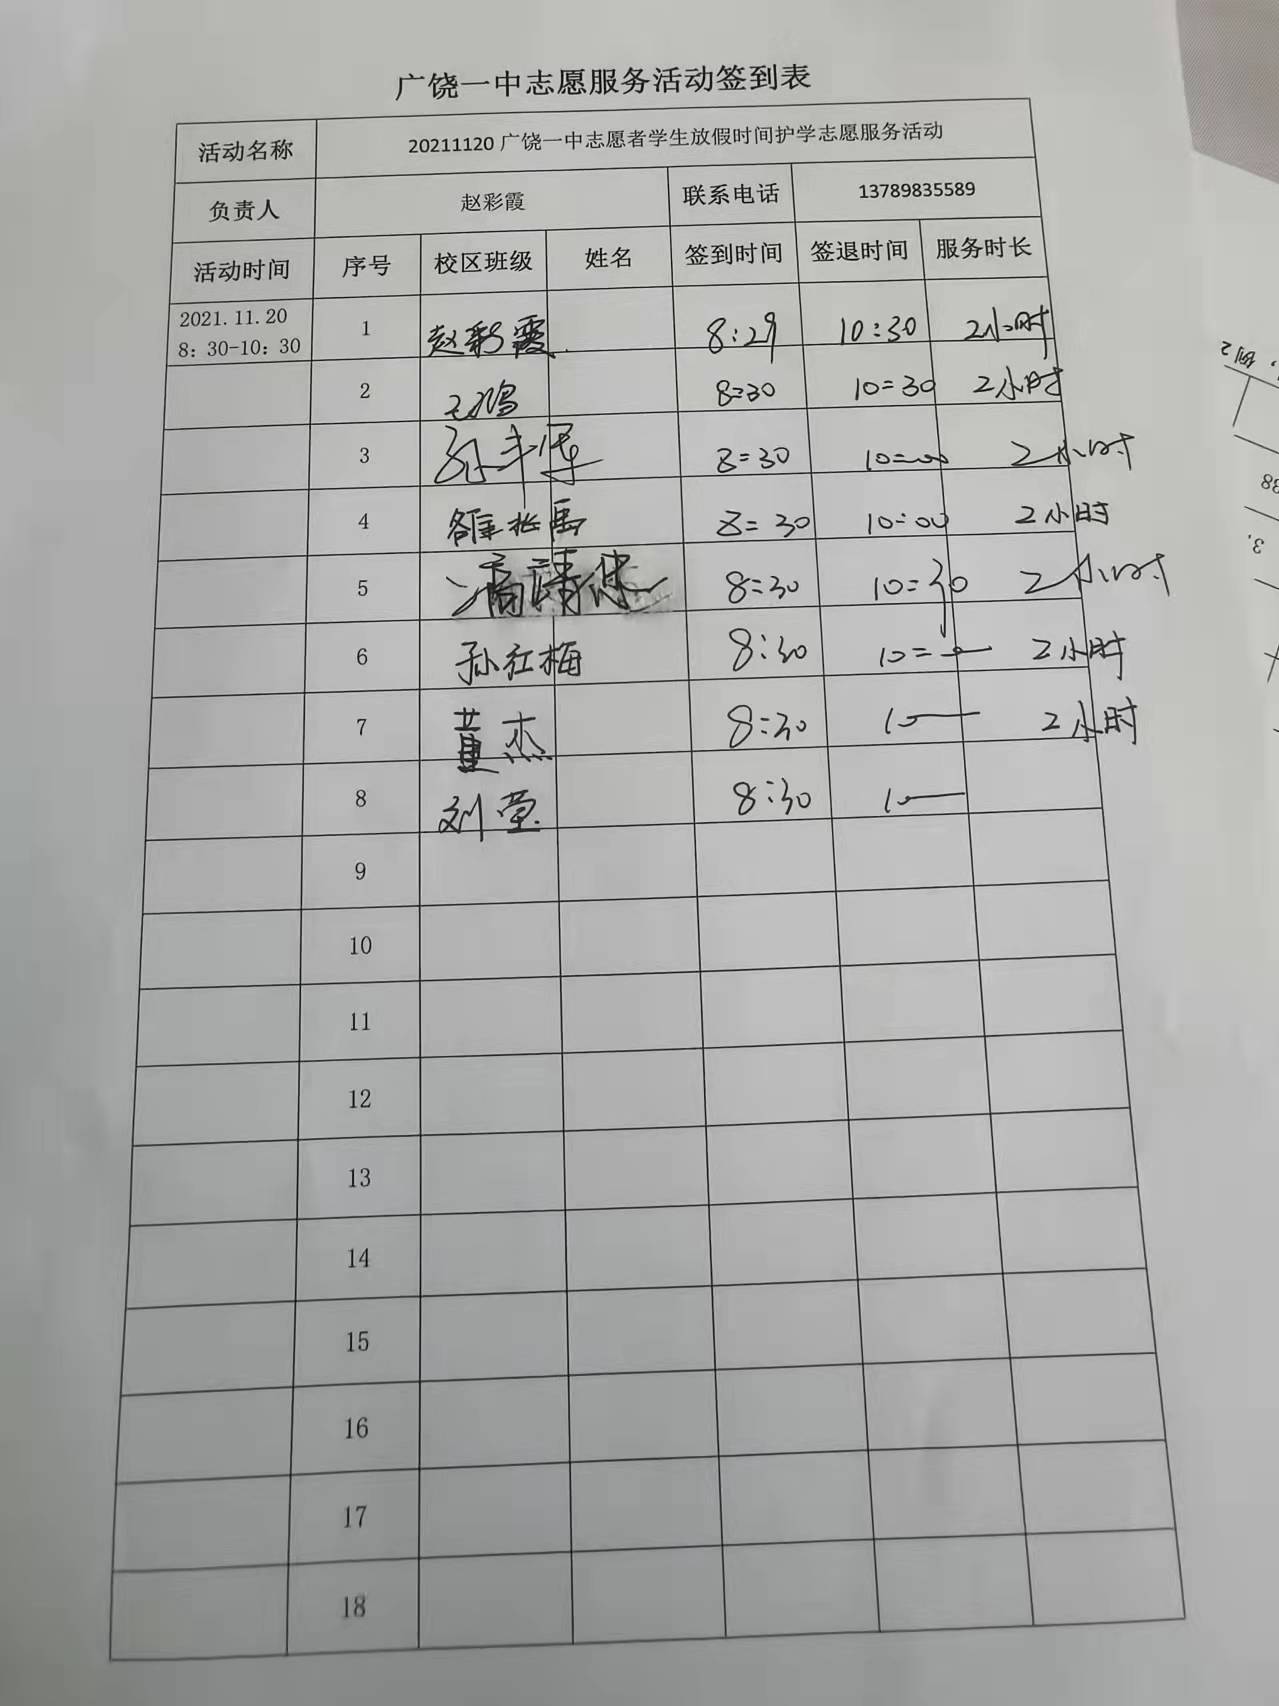 广饶一中志愿服务活动签到表
活动名称 20211120广饶一中志愿者学生放假时间护学志愿服务活动
负责人 赵彩霞 联系电话 13789835589
活动时间 序号 校区班级 姓名 签到时间 签退时间 服务时长
2021.11.20
8：30-10：30 1 赵彩霞 8:29 10:30 2小时
2 8:30 10:30 2小时
3 8:30 10:00 2小时
4 8:30 10:00 2小时
5 8:30 10:30 2小时
6 孙红梅 8:30 10: 2小时
7 董杰 8:30 10 2小时
8 刘莹 8:30 10
9
10
11
12
13
14
15
16
17
18